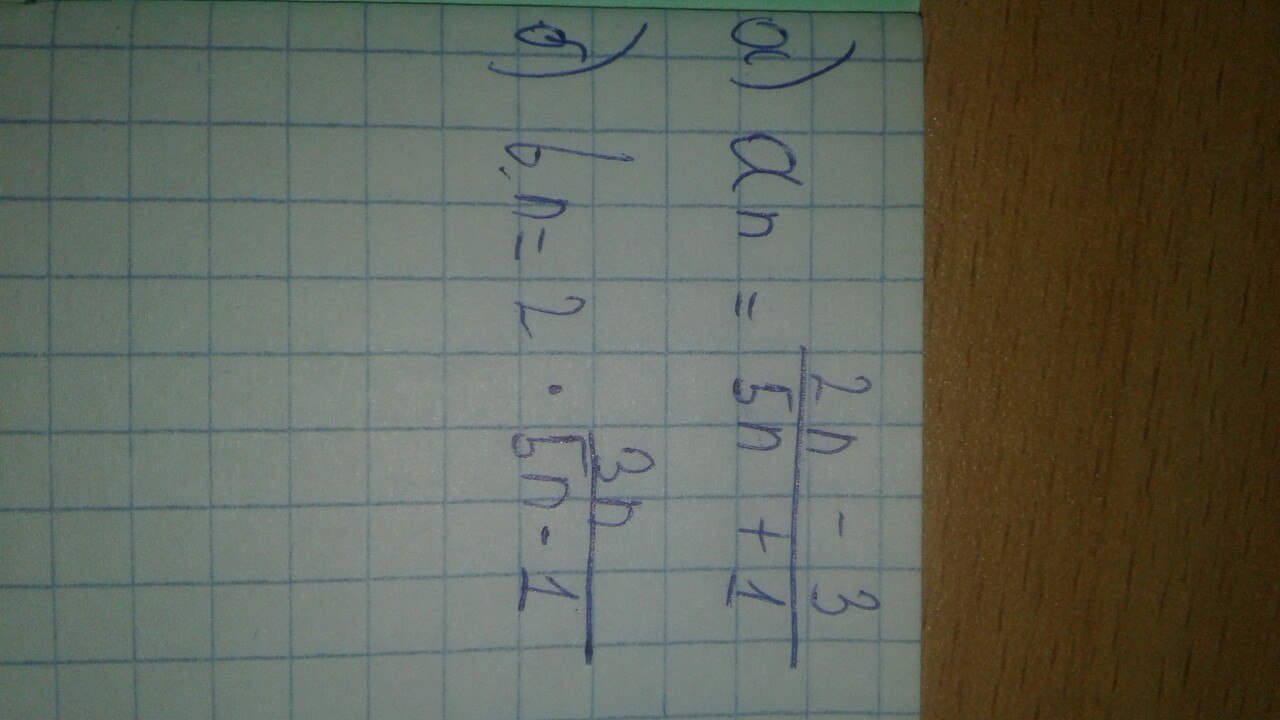 а) an = 2n - 3 / 5n + 1
б) bn = 2 · 3n / 5n - 1